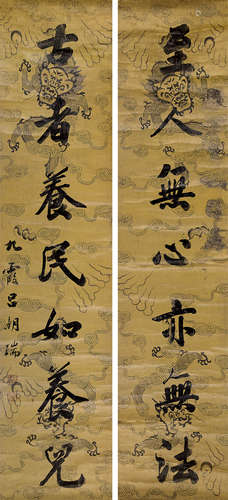 至人無心亦無法
古者養民如養兒
九霞吕朝瑞